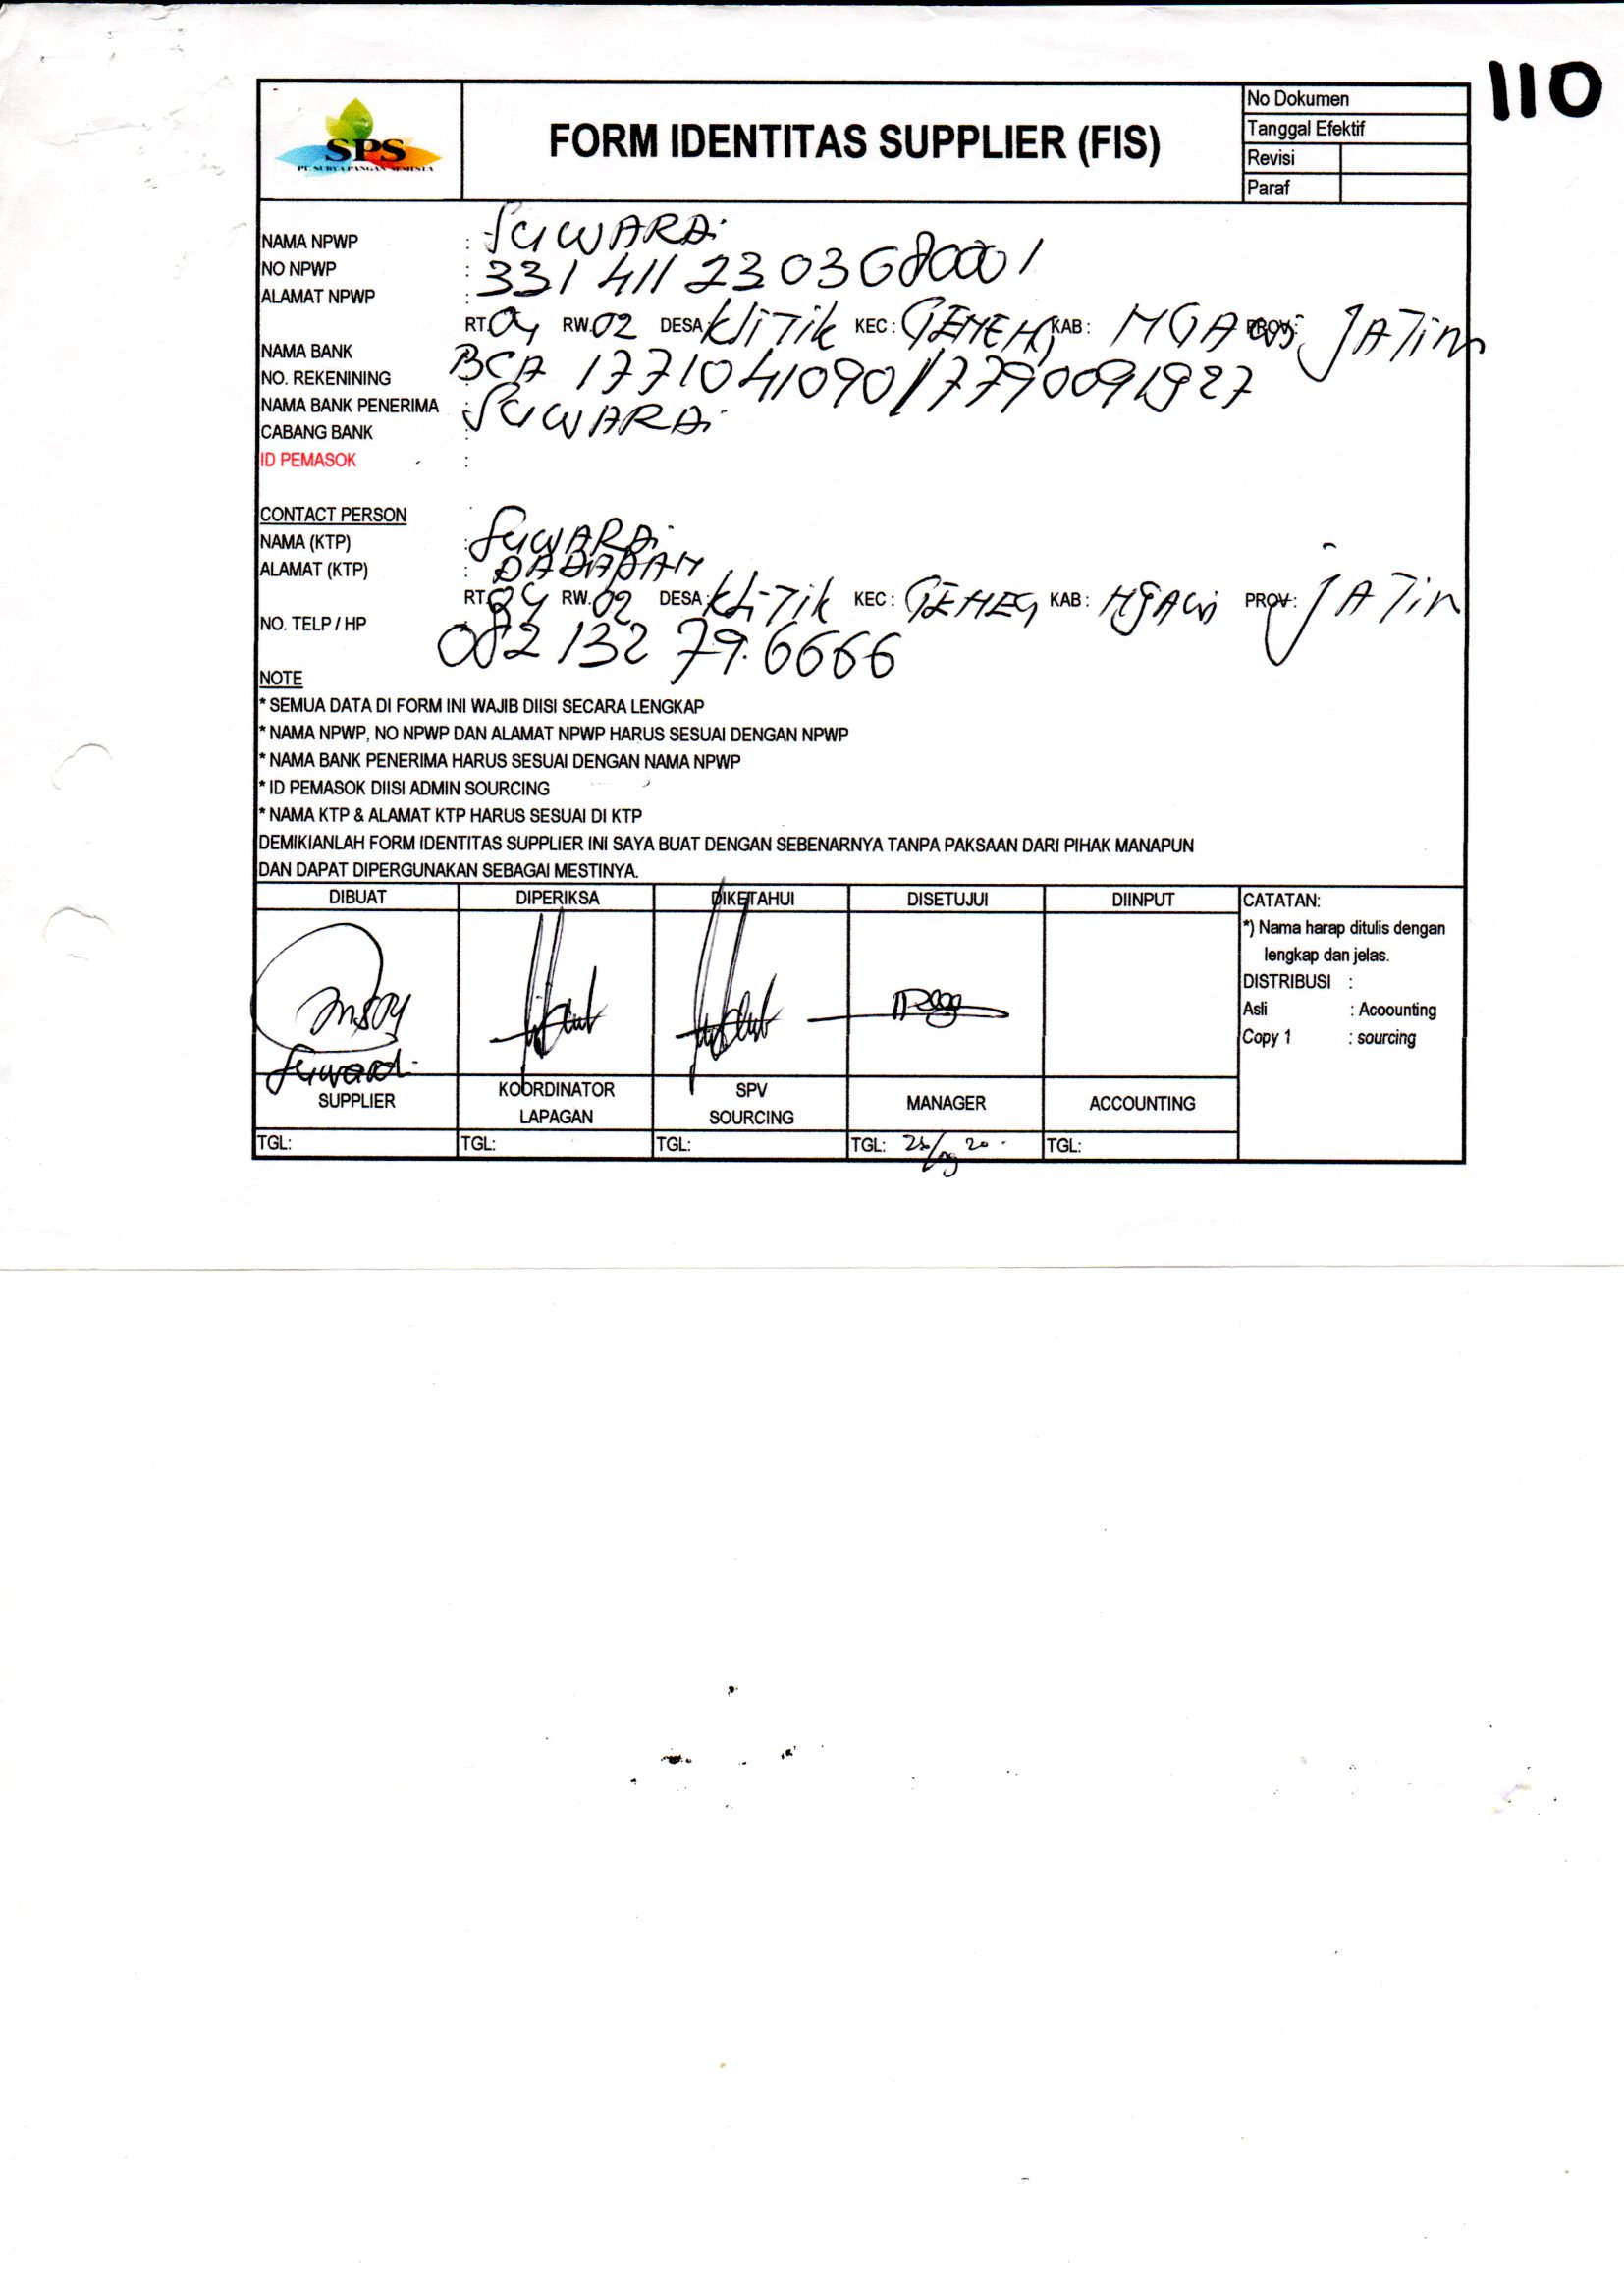 110
SPS
PT. SURYA PANGAN SEMESTA
FORM IDENTITAS SUPPLIER (FIS)
No Dokumen
Tanggal Efektif
Revisi
Paraf
NAMA NPWP : SUWARDi
NO NPWP : 331 411 230368 0001
ALAMAT NPWP :
RT. 04 RW. 02 DESA: KliTik KEC : GENENG KAB : NGAwi PROV : JATim
NAMA BANK BCA
NO. REKENINING 1771041090/7790091927
NAMA BANK PENERIMA : SUWARDi
CABANG BANK :
ID PEMASOK :
CONTACT PERSON
NAMA (KTP) : SUWARDi
ALAMAT (KTP) : DADAPAN
RT. 04 RW. 02 DESA: KLiTik KEC : GENENG KAB : NGAwi PROV : JATim
NO. TELP / HP 082 132 79. 6666
NOTE
* SEMUA DATA DI FORM INI WAJIB DIISI SECARA LENGKAP
* NAMA NPWP, NO NPWP DAN ALAMAT NPWP HARUS SESUAI DENGAN NPWP
* NAMA BANK PENERIMA HARUS SESUAI DENGAN NAMA NPWP
* ID PEMASOK DIISI ADMIN SOURCING
* NAMA KTP & ALAMAT KTP HARUS SESUAI DI KTP
DEMIKIANLAH FORM IDENTITAS SUPPLIER INI SAYA BUAT DENGAN SEBENARNYA TANPA PAKSAAN DARI PIHAK MANAPUN
DAN DAPAT DIPERGUNAKAN SEBAGAI MESTINYA.
DIBUAT DIPERIKSA DIKETAHUI DISETUJUI DIINPUT
CATATAN:
*) Nama harap ditulis dengan
lengkap dan jelas.
DISTRIBUSI :
Asli : Acoounting
Copy 1 : sourcing
Suwardi
SUPPLIER
KOORDINATOR
LAPAGAN
SPV
SOURCING
MANAGER
ACCOUNTING
TGL: TGL: TGL: TGL: TGL: